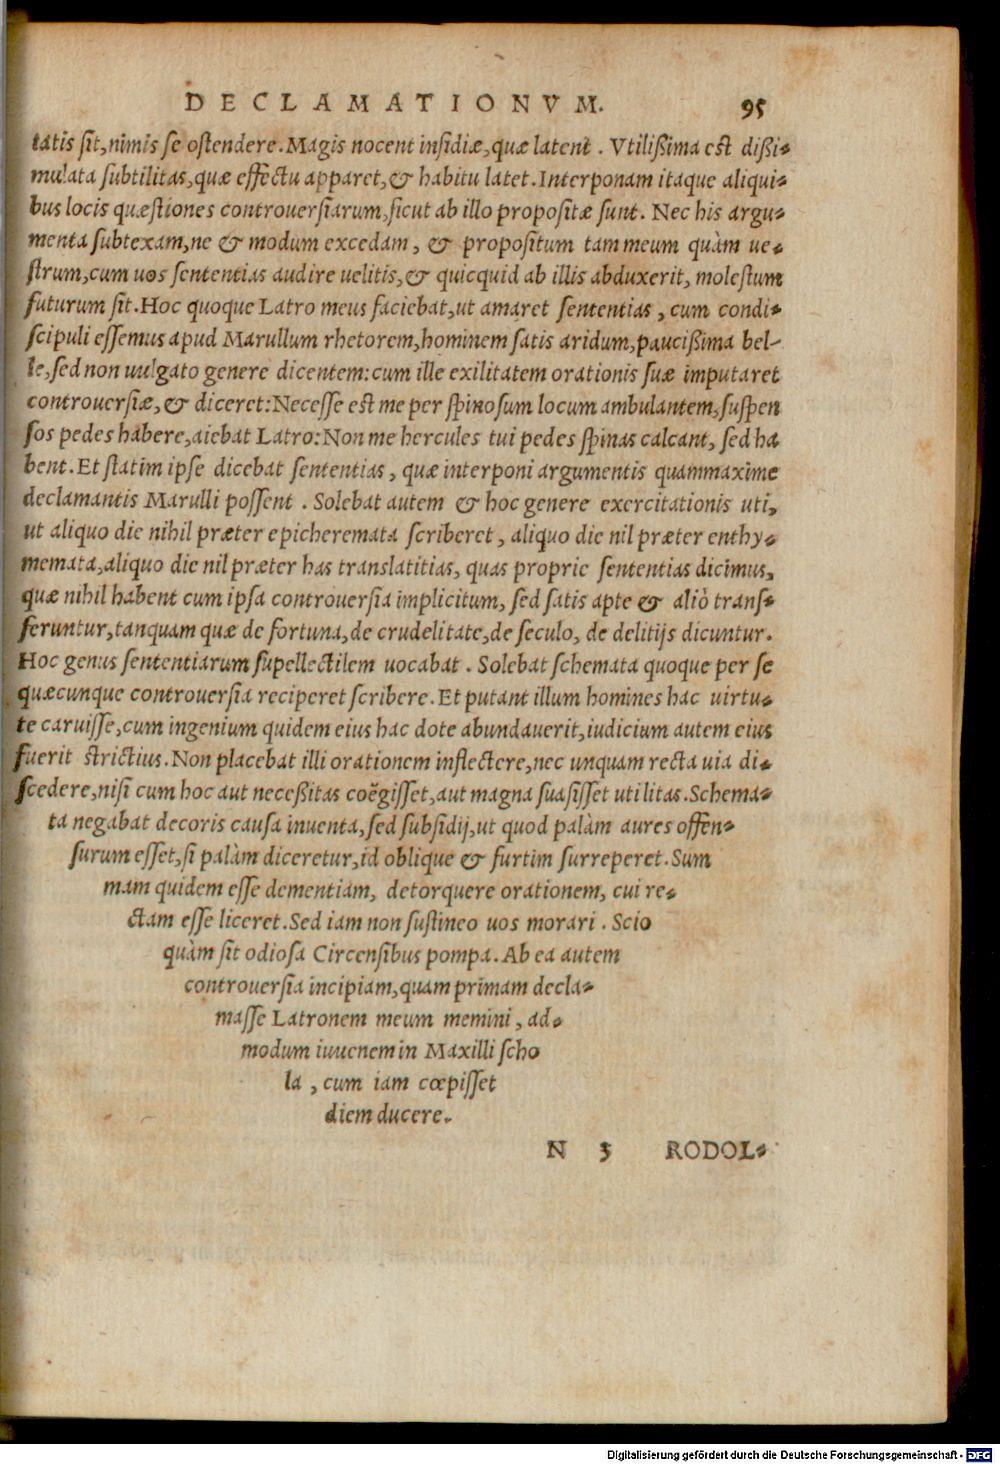 DECLAMATIONVM. 95
tatis sit, nimis se ostendere. Magis nocent insidiæ, quæ latent. Vtilißima est dißi-
mulata subtilitas, quæ effectu apparet, & habitu latet. Interponam itaque aliqui-
bus locis quæstiones controuersiarum, sicut ab illo propositæ sunt. Nec his argu-
menta subtexam, ne & modum excedam, & propositum tam meum quàm ue-
strum, cum uos sententias audire uelitis, & quicquid ab illis abduxerit, molestum
futurum sit. Hoc quoque Latro meus faciebat, ut amaret sententias, cum condi-
scipuli essemus apud Marullum rhetorem, hominem satis aridum, paucißima bel-
le, sed non uulgato genere dicentem: cum ille exilitatem orationis suæ imputaret
controuersiæ, & diceret: Necesse est me per spinosum locum ambulantem, suspen
sos pedes habere, aiebat Latro: Non me hercules tui pedes spinas calcant, sed ha
bent. Et statim ipse dicebat sententias, quæ interponi argumentis quammaxime
declamantis Marulli possent. Solebat autem & hoc genere exercitationis uti,
ut aliquo die nihil præter epicheremata scriberet, aliquo die nil præter enthy-
memata, aliquo die nil præter has translatitias, quas proprie sententias dicimus,
quæ nihil habent cum ipsa controuersia implicitum, sed satis apte & aliò trans-
feruntur, tanquam quæ de fortuna, de crudelitate, de seculo, de delitijs dicuntur.
Hoc genus sententiarum supellectilem uocabat. Solebat schemata quoque per se
quæcunque controuersia reciperet scribere. Et putant illum homines hac uirtu-
te caruisse, cum ingenium quidem eius hac dote abundauerit, iudicium autem eius
fuerit strictius. Non placebat illi orationem inflectere, nec unquam recta uia di-
scedere, nisi cum hoc aut neceßitas coëgisset, aut magna suasisset utilitas. Schema-
ta negabat decoris causa inuenta, sed subsidij, ut quod palàm aures offen-
surum esset, si palàm diceretur, id oblique & furtim surreperet. Sum
mam quidem esse dementiam, detorquere orationem, cui re-
ctam esse liceret. Sed iam non sustineo uos morari. Scio
quàm sit odiosa Circensibus pompa. Ab ea autem
controuersia incipiam, quam primam decla-
masse Latronem meum memini, ad-
modum iuuenem in Maxilli scho
la, cum iam cœpisset
diem ducere.
N 3 RODOL-
Digitalisierung gefördert durch die Deutsche Forschungsgemeinschaft - DFG